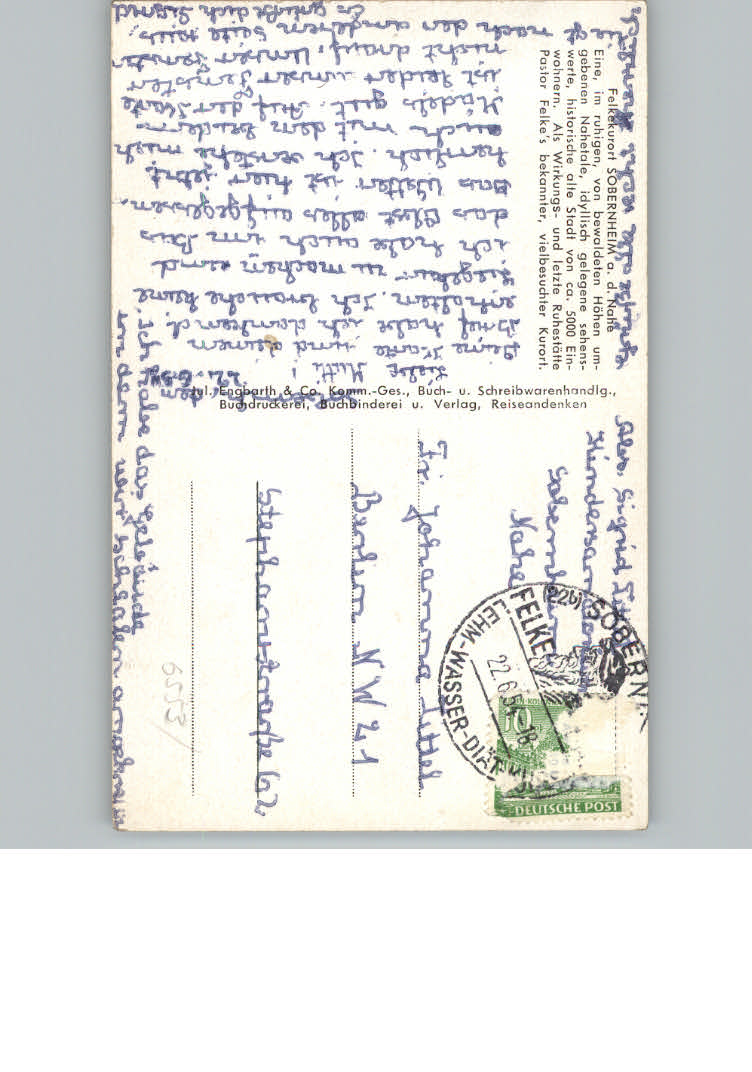 Felkekurort SOBERNHEIM a. d. Nahe
Eine, im ruhigen, von bewaldeten Höhen um-
gebenen Nahetale, idyllisch gelegene sehens-
werte, historische alte Stadt von ca. 5000 Ein-
wohnern. Als Wirkungs- und letzte Ruhestätte
Pastor Felke's bekannter, vielbesuchter Kurort.
Jul. Engbarth & Co. Komm.-Ges., Buch- u. Schreibwarenhandlg.,
Buchdruckerei, Buchbinderei u. Verlag, Reiseandenken
Liebe Mutti!
Deine Karte und deinen
Brief habe ich dankend
erhalten. Ich brauche keine
zu machen und
ich habe auch um Bis
das Obst alles aufgegessen.
Das Wetter ist hier jetzt
herrlich. Ich verstehe mich
auch mit dem beudern
Mädels gut. Auf der Karte
ist leider unser Fenster
nicht drauf. Unser Fenster
nach der anderen Seite raus
Es grüßt dich Sigrid
Ich habe das Gebäude
in dem wir schlafen
Abs. Sigrid
Sobernheim
Nahe
Fr. Johanna Tittel
Berlin NW 21
Stephanstraße 62
6553/
(22b) SOBERNH
FELKE
LEHM-WASSER-DIÄT-KU
22.6.5 -18
10
DEUTSCHE POST